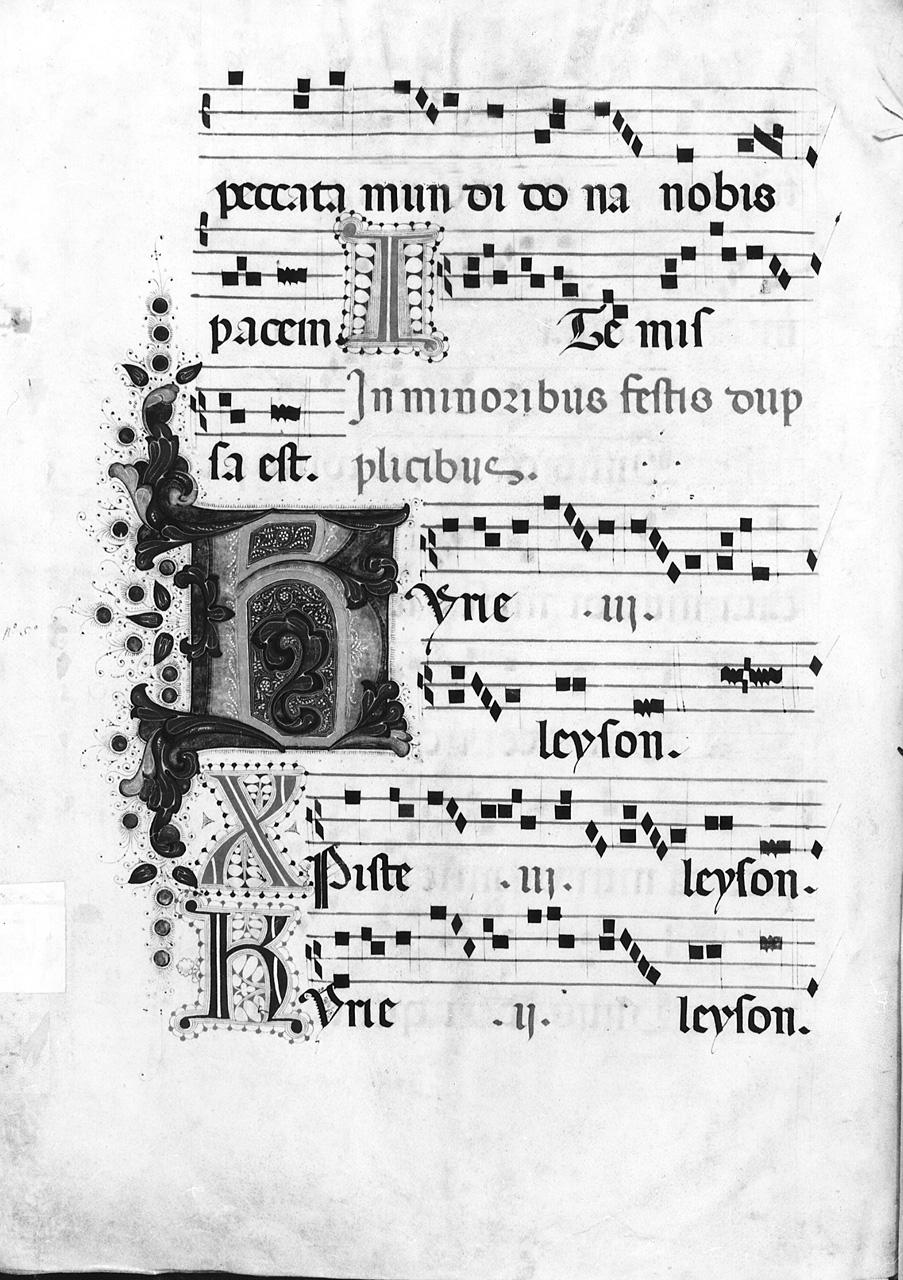 peccata mun di do na nobis
pacem. I Te mis
In minoribus festis dup
sa est. plicibus.
K Yrie .iij.
leyson.
X Piste .iij. leyson.
K Yrie .ij. leyson.